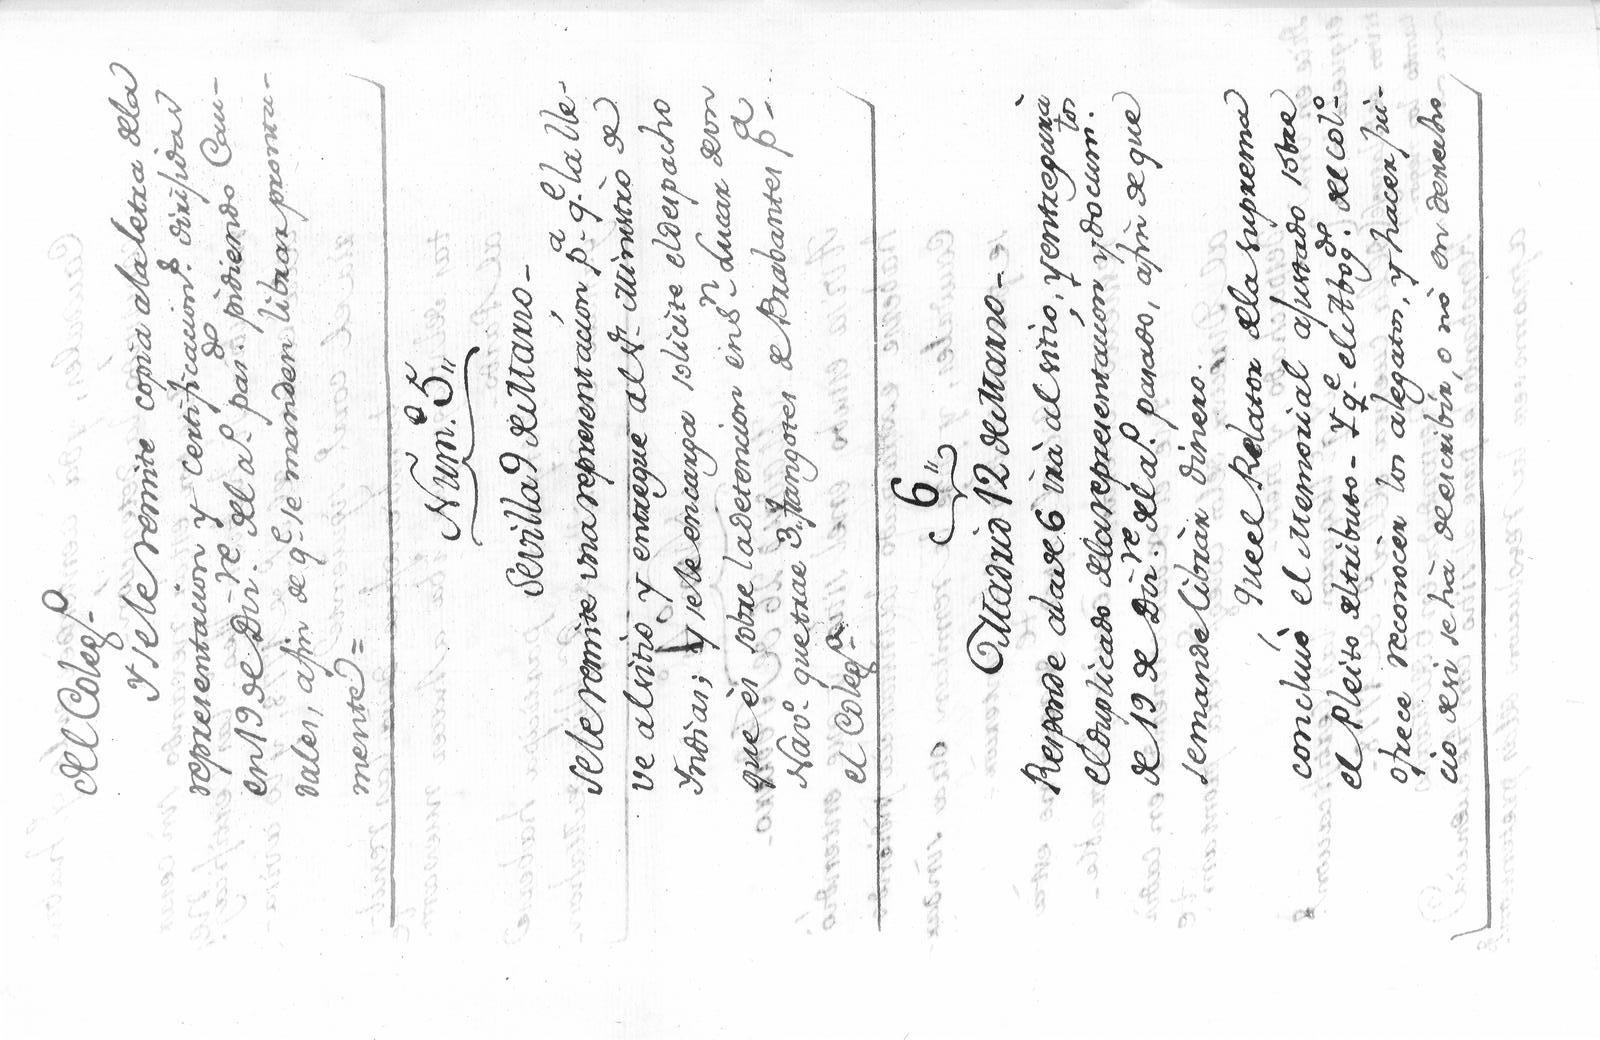 del Coleg.º
Y se le remite copia a la letra dela
representacion y certificacion.s dirijidas
en 19 de Dir.re del a.º pas.do pidiendo Cau-
dales, afin de q.e se manden librar pronta-
mente =
Num.º 5"
Sevilla 9 de Marzo-
Se le remite una representacion p.a q.e la lle-
ve al sitio y entregue al S.r Ministro de
Indias; y se le encarga solicite el despacho
que es sobre la detencion en S.n Lucar de un
Nav.º que trae 3" Tangores de Brabantes p.a
el Coleg.º
6"
Madrid 12 de Marzo-
Responde a la de 6 irà al sitio, y entregarà
el duplicado de la representacion y docum.tos
de 19 de Dir.re del a.º pasado, afin de que
se mande librar dinero.
Que el Relator dela suprema
concluiò el Memorial ajustado sobre
el Pleito del tributo- Y q.e el Abog.do del Col.º
ofrece reconocer los alegatos, y hacer jui-
cio de si se hà de escribir, o nò en derecho